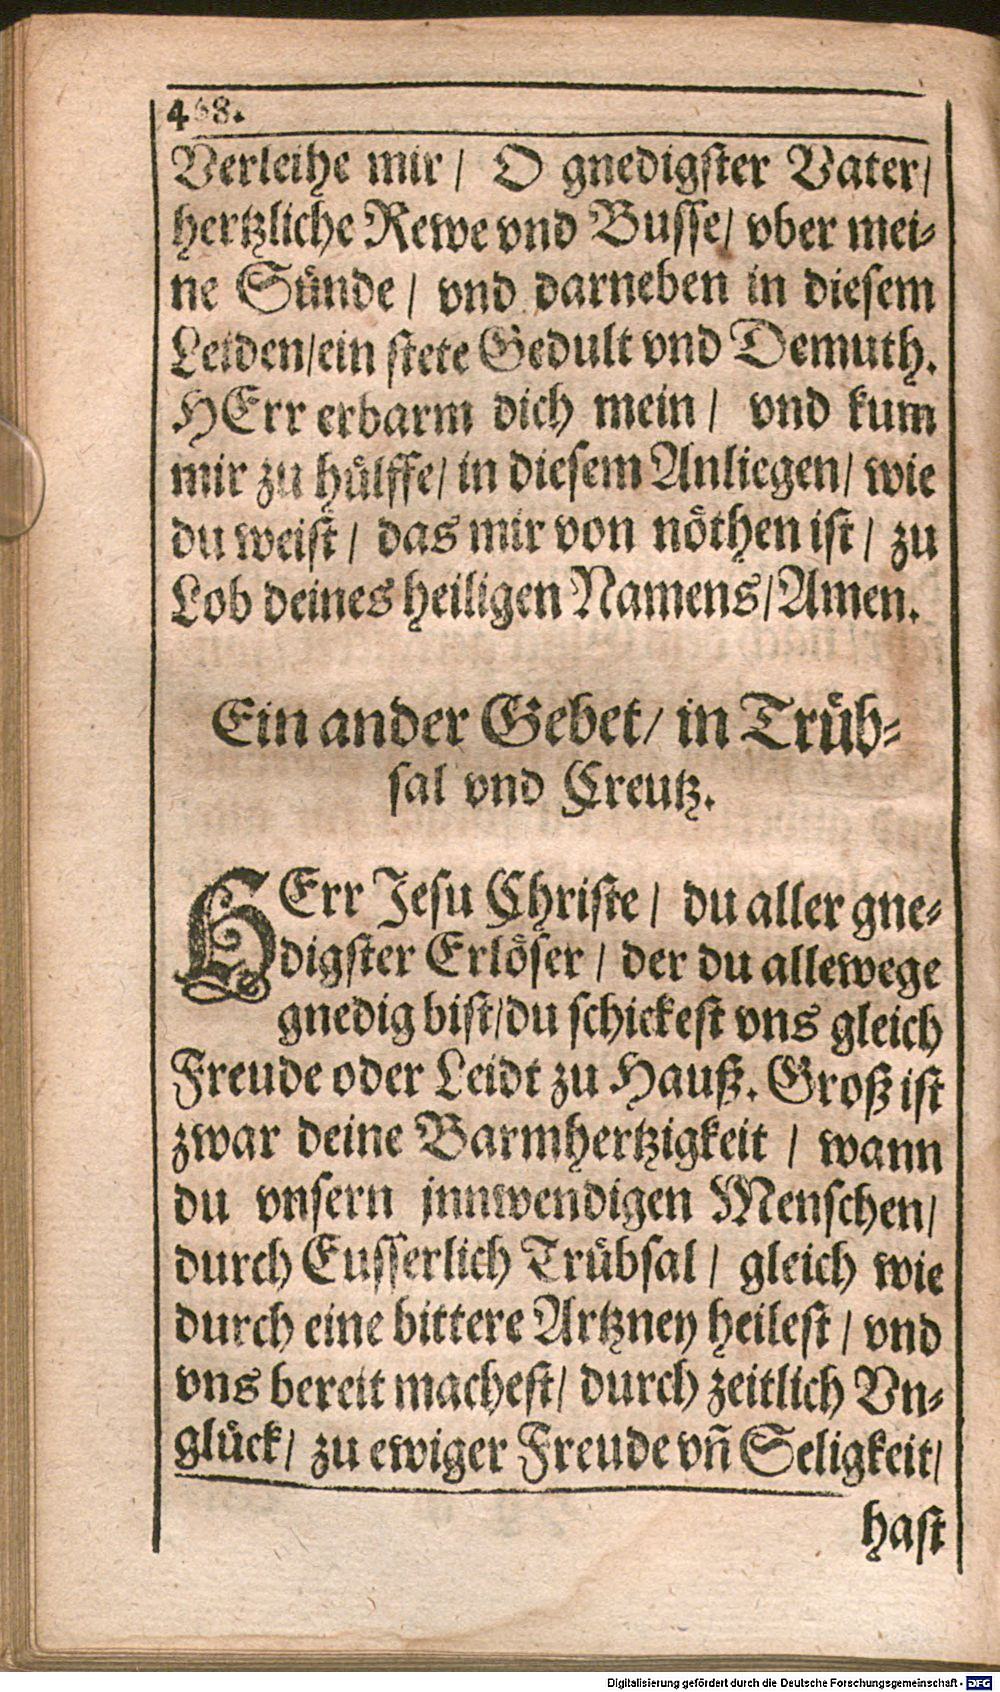 468.
Verleihe mir / O gnedigster Vater /
hertzliche Rewe vnd Busse / vber mei-
ne Sünde / vnd darneben in diesem
Leiden / ein stete Gedult vnd Demuth.
HErr erbarm dich mein / vnd kum
mir zu hülffe / in diesem Anliegen / wie
du weist / das mir von nöthen ist / zu
Lob deines heiligen Namens / Amen.
Ein ander Gebet / in Trüb-
sal vnd Creutz.
HErr Jesu Christe / du aller gne-
digster Erlöser / der du allewege
gnedig bist / du schickest vns gleich
Freude oder Leidt zu Hauß. Groß ist
zwar deine Barmhertzigkeit / wann
du vnsern jnnwendigen Menschen /
durch Eusserlich Trübsal / gleich wie
durch eine bittere Artzney heilest / vnd
vns bereit machest / durch zeitlich Vn-
glück / zu ewiger Freude vñ Seligkeit /
hast
Digitalisierung gefördert durch die Deutsche Forschungsgemeinschaft - DFG